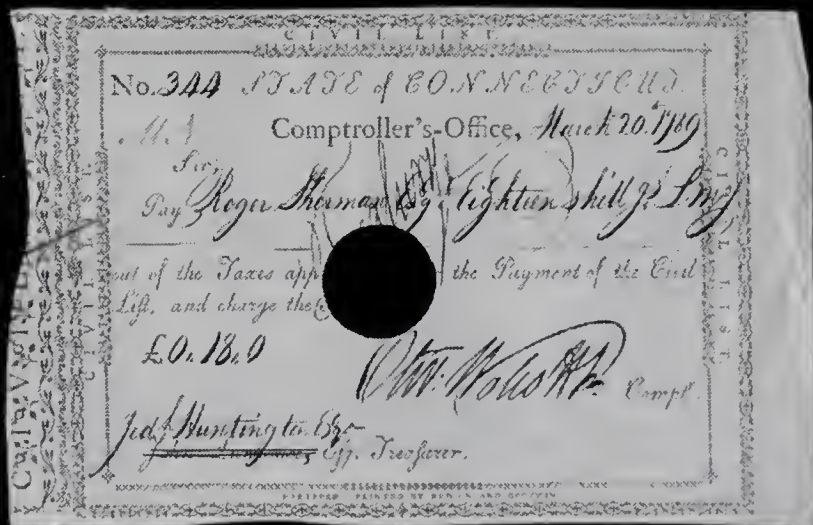 CIVIL LIST
No. 344 STATE of CONNECTICUT.
Comptroller's-Office, March 20.th 1789
Sir,
Pay Roger Sherman Esqr Eighteen shill
out of the Taxes app the Payment of the Civil
List, and charge the
£0.18.0
Olivr. Wolcott Jr. Compt.
Jedh Huntington Esqr
Esq. Treasurer.
CIVIL LIST
CIVIL LIST
HARTFORD PRINTED BY HUDSON AND GOODWIN